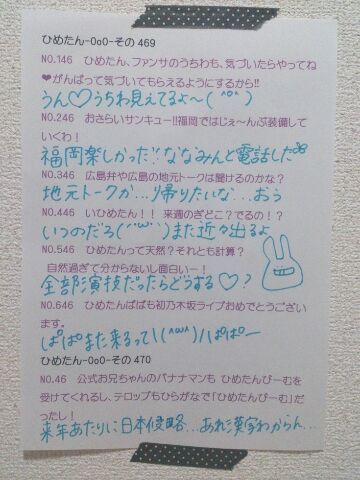 ひめたん-OoO-その 469
NO.146　ひめたん、ファンサのうちわも、気づいたらやってね
♥がんばって気づいてもらえるようにするから!!
うん♡うちわ見えてるよ〜(＾o＾)
NO.246　おさらいサンキュー!!福岡ではじぇ〜んぶ装備して
いくわ！
福岡楽しかった♡ななみんと電話した
NO.346　広島弁や広島の地元トークは聞けるのかな？
地元トークか…帰りたいな…おう
NO.446　いひめたん！！ 来週のぎどこ？でるの！？
いつのだろ(´˘｀)また近々出るよ
NO.546　ひめたんって天然？それとも計算？
自然過ぎて分からないし面白いー！
全部演技だったらどうする♡？
NO.646　ひめたんぱぱも初乃木坂ライブおめでとうござい
ます。
ぱぱまた来るって\(^w^)/ぱぱー
ひめたん-OoO-その 470
NO.46　公式お兄ちゃんのバナナマンも ひめたんびーむを
受けてくれるし、テロップもひらがなで「ひめたんびーむ」だ
ったし！
来年あたりに日本侵略…あれ漢字わからん…